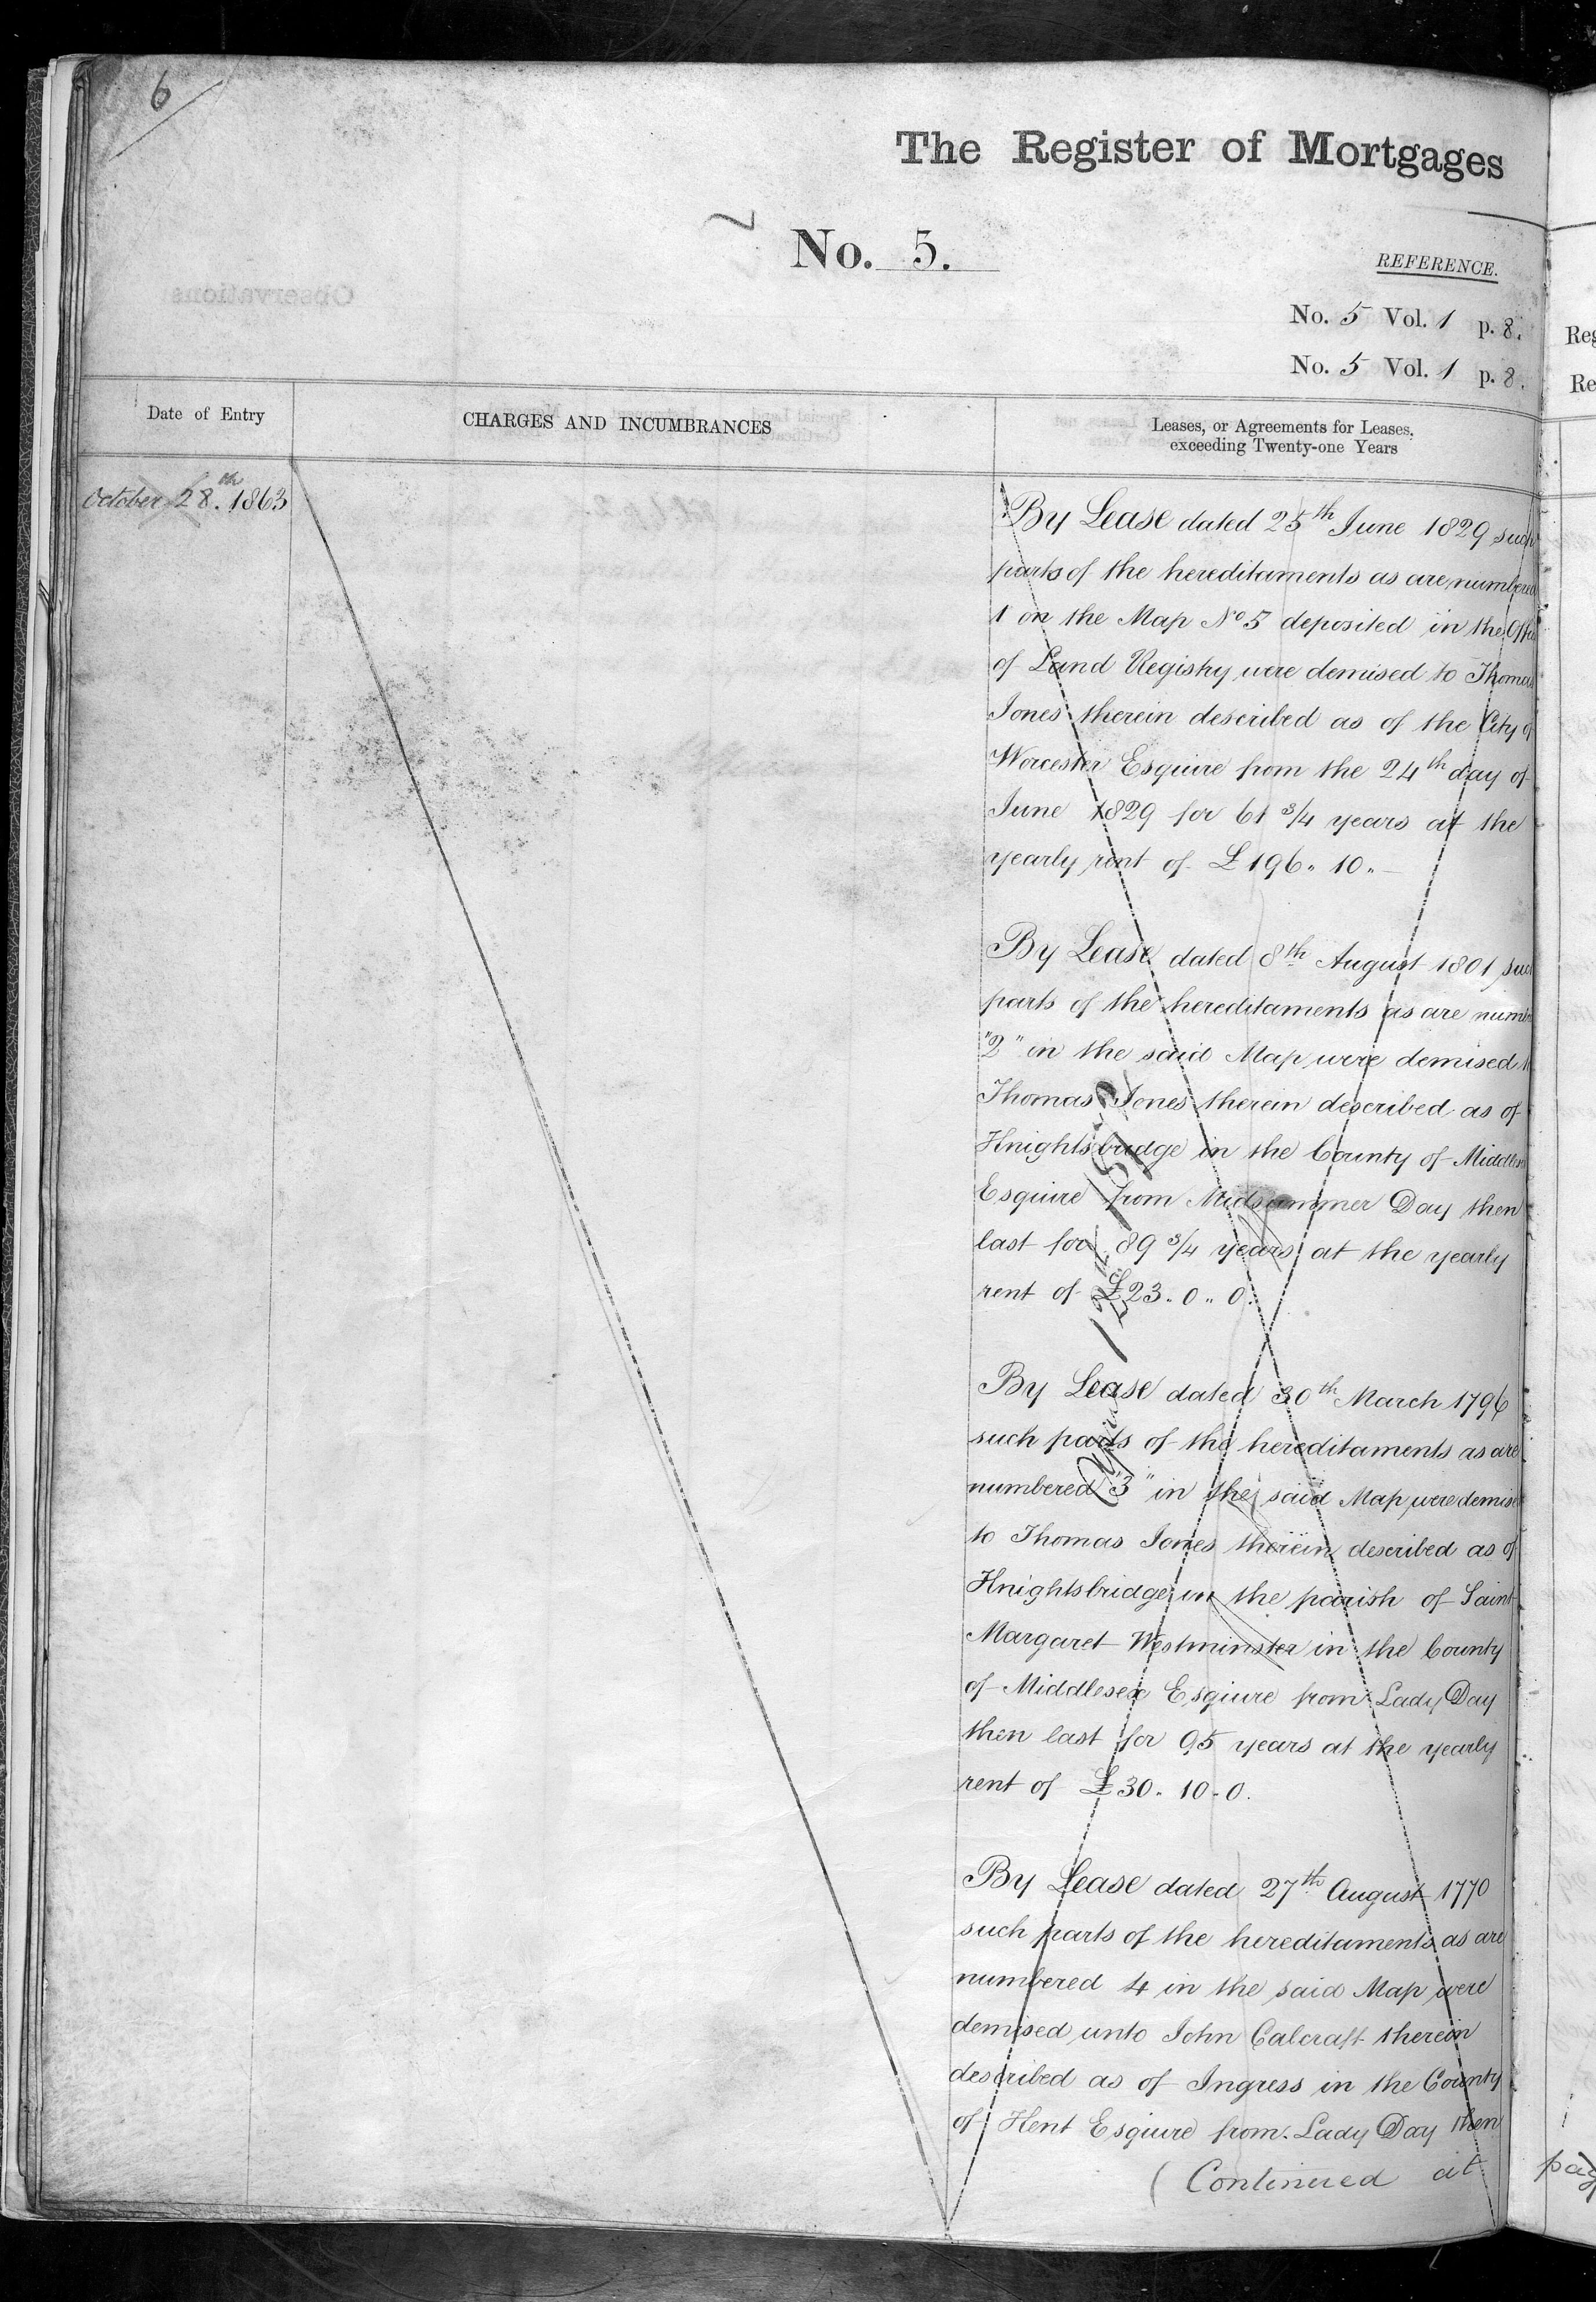 6
The Register of Mortgages
No. 5.
REFERENCE.
No. 5 Vol. 1 p. 8.
No. 5 Vol. 1 p. 8.
Reg
Re
Date of Entry
CHARGES AND INCUMBRANCES
Leases, or Agreements for Leases,
exceeding Twenty-one Years
October 28.th 1863
By Lease dated 25th June 1829 such
parts of the hereditaments as are numbered
1 on the Map No 5 deposited in the Offi
of Land Registry were demised to Thomas
Jones therein described as of the City of
Worcester Esquire from the 24th day of
June 1829 for 61 3/4 years at the
yearly rent of £196.. 10.. –
By Lease dated 8th August 1801 such
parts of the hereditaments as are numb
"2" in the said Map were demised
Thomas Jones therein described as of
Knightsbridge in the County of Middles
Esquire from Midsummer Day then
last for 89 3/4 years at the yearly
rent of £23.. 0.. 0.
By Lease dated 30th March 1796
such parts of the hereditaments as are
numbered "3" in the said Map were demise
to Thomas Jones therein described as of
Knightsbridge in the parish of Saint
Margaret Westminster in the County
of Middlesex Esquire from Lady Day
then last for 95 years at the yearly
rent of £30. 10. 0.
By Lease dated 27th August 1770
such parts of the hereditaments as are
numbered 4 in the said Map were
demised unto John Calcraft therein
described as of Ingress in the County
of Kent Esquire from Lady Day then
(Continued at
pag